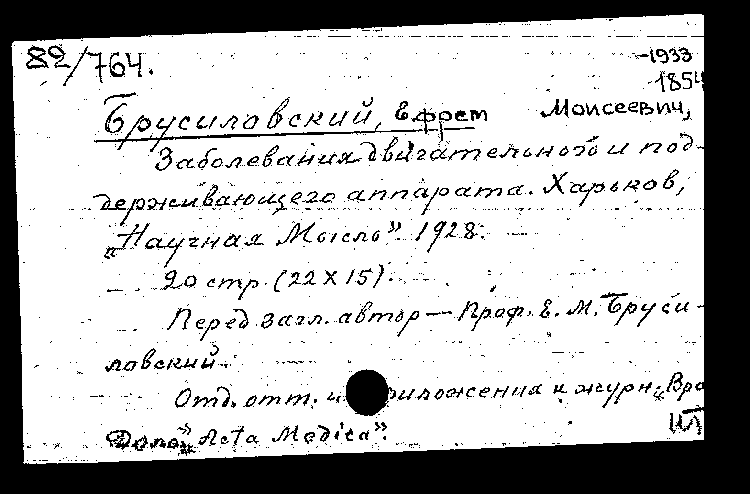 82/764.
-1933
1854
Брусиловский, Ефрем Моисеевич,
Заболевания двигательного и под-
держивающего аппарата. Харьков,
„Научная Мысль" 1928.
20 стр. (22 X 15).
Перед загл. автор — Проф. Е. М. Бруси-
ловский.
Отд. отт. из приложения к журн. „Вра
Дело" „Acta Medica".